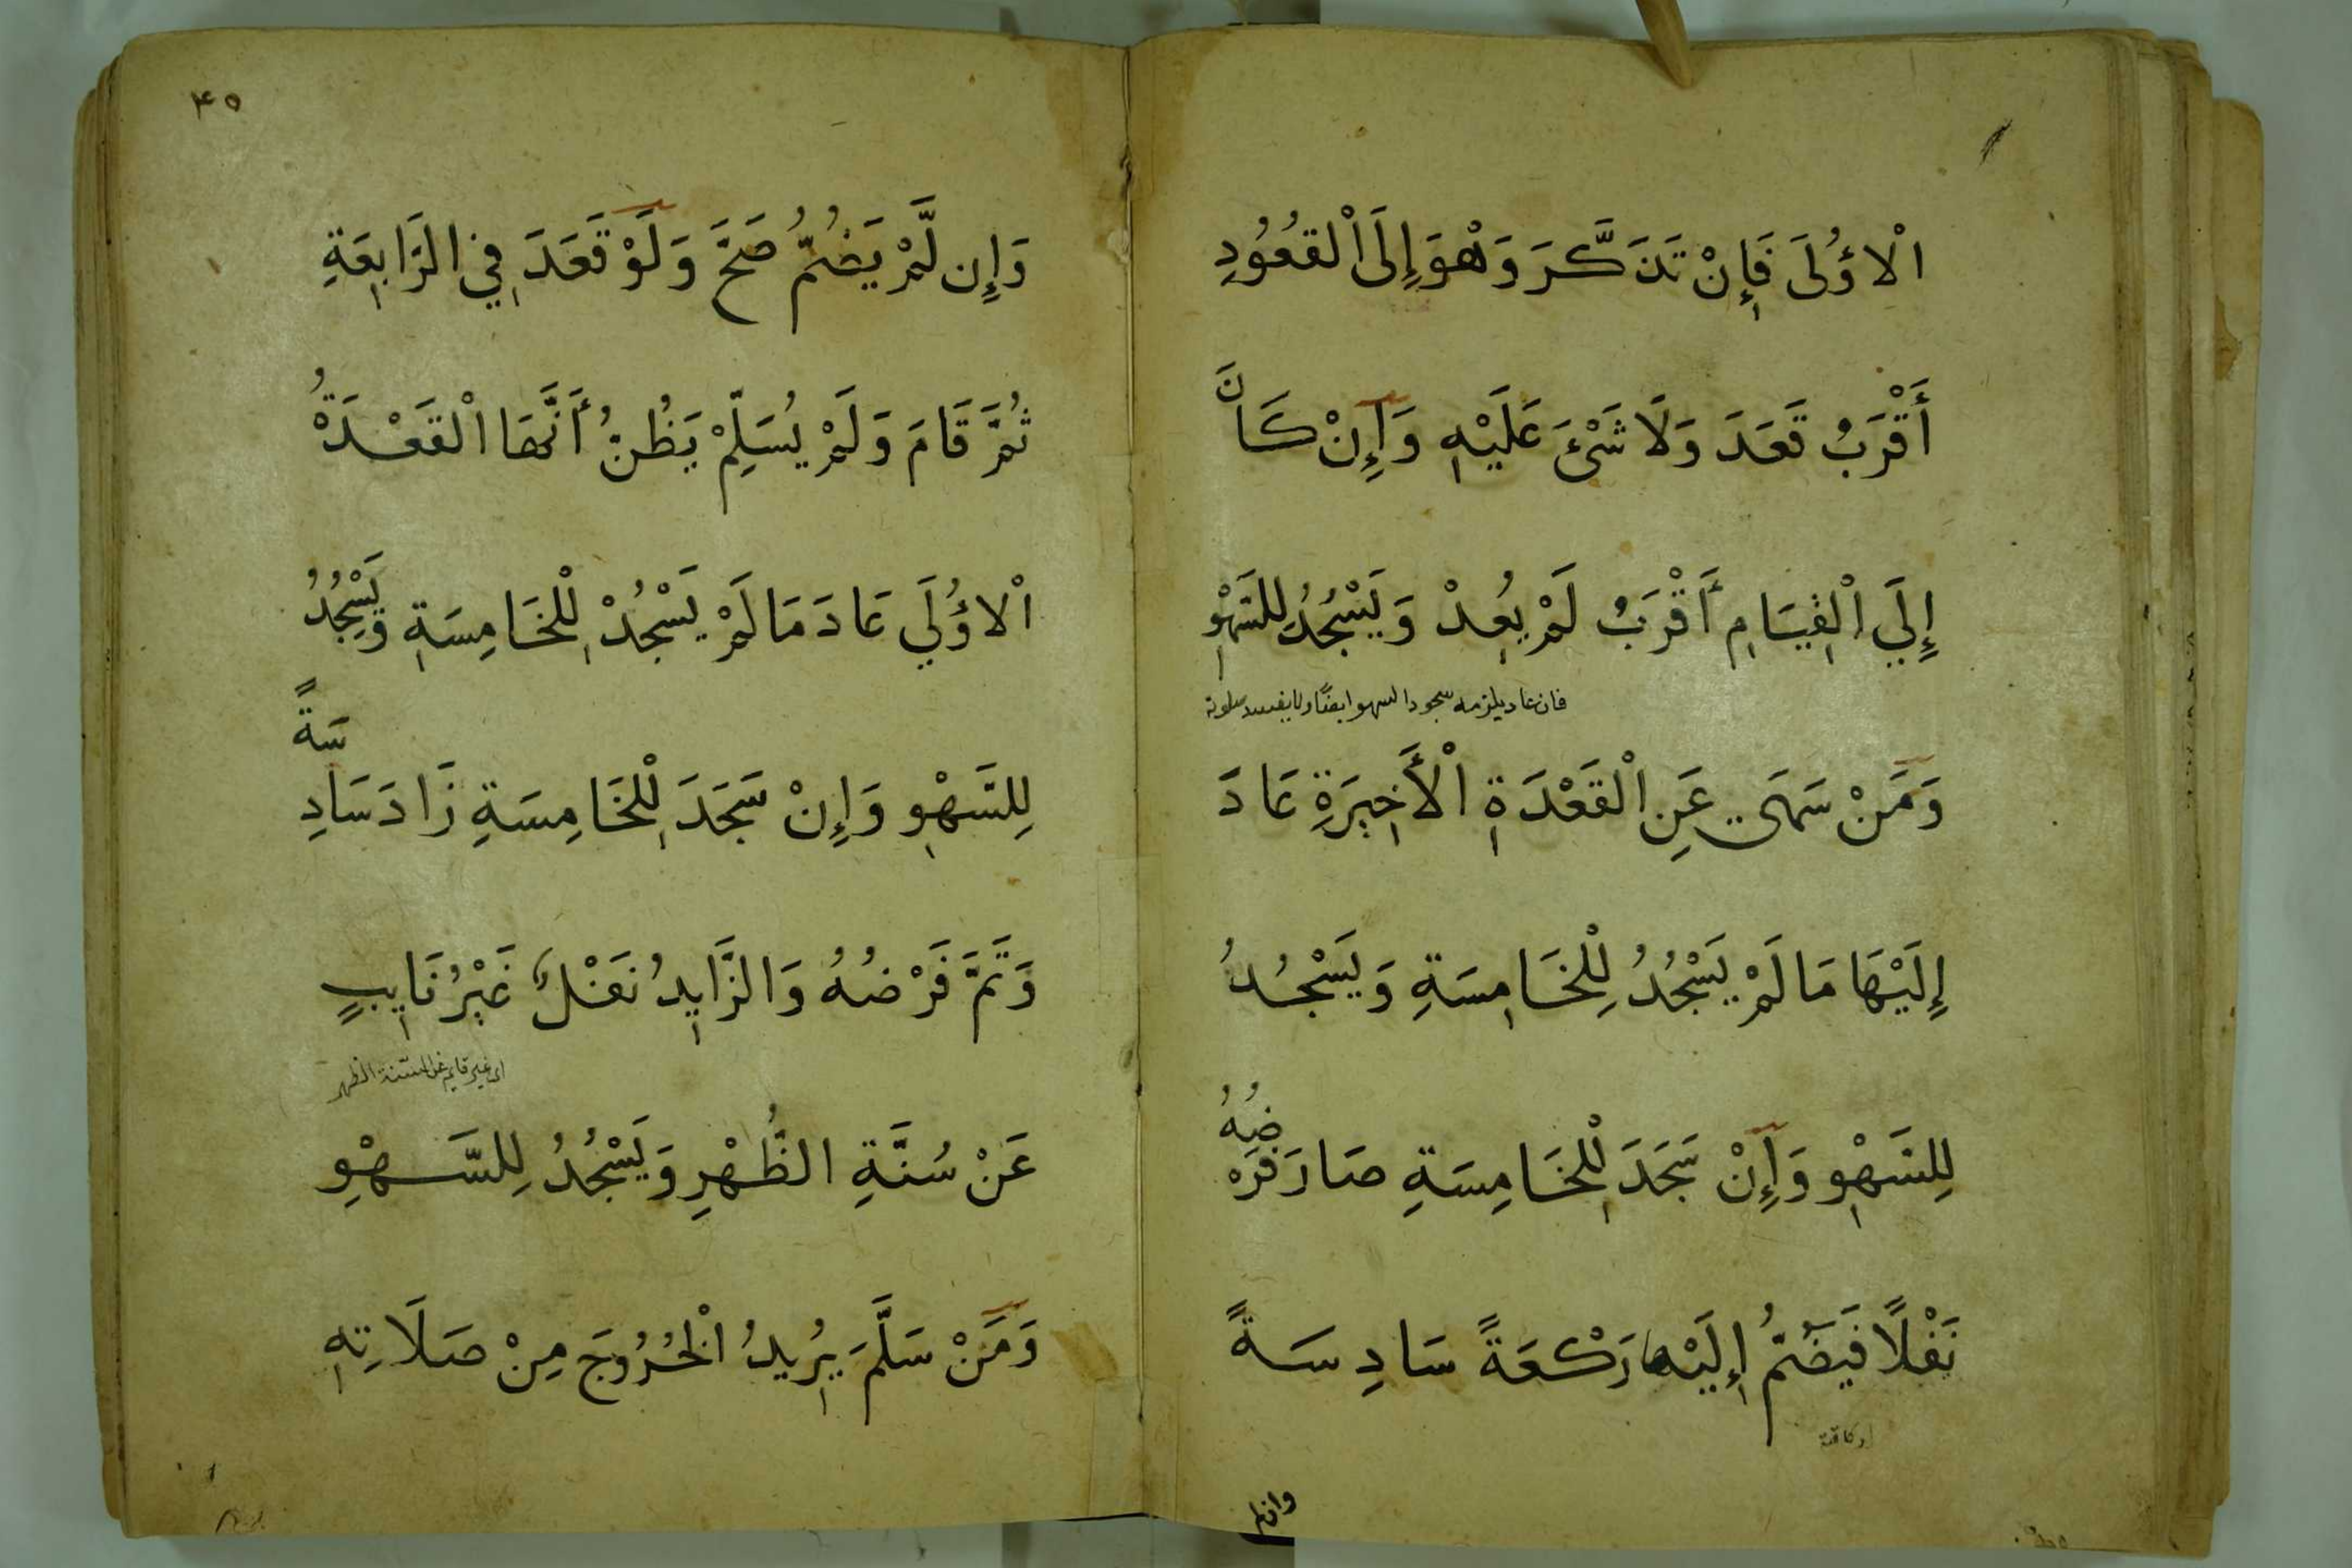 الْاؤُلَى فَإِنْ تَذَكَّرَ وَهْوَ إِلَى الْقُعُودِ
أَقْرَبُ قَعَدَ وَلَا شَىْءَ عَلَيْهِ وَإِنْ كَانَ
إِلَي الْقِيَامِ أَقْرَبُ لَمْ يُعِدْ وَيَسْجُدُ لِلسَّهْوِ
فان عاد يلزمه سجود السهو ايضًا ولا يفسد صلوته
وَمَنْ سَهَى عَنِ الْقَعْدَةِ الْأَخِيرَةِ عَادَ
إِلَيْهَا مَا لَمْ يَسْجُدُ لِلْخَامِسَةِ وَيَسْجُدُ
لِلسَّهْوِ وَإِنْ سَجَدَ لِلْخَامِسَةِ صَارَ فَرْضُهُ
نَفْلًا فَيَضُمُّ إِلَيْهَا رَكْعَةً سَادِسَةً
وان لم
٤٥
وَإِن لَّمْ يَضُمُّ صَحَّ وَلَوْ قَعَدَ فِي الرَّابِعَةِ
ثُمَّ قَامَ وَلَمْ يُسَلِّمْ يَظُنُّ أَنَّهَا الْقَعْدَةُ
الْاؤُلَي عَادَ مَا لَمْ يَسْجُدْ لِلْخَامِسَةِ وَيَسْجُدُ
لِلسَّهْوِ وَإِنْ سَجَدَ لِلْخَامِسَةِ زَادَ سَادِسَةً
وَتَمَّ فَرْضُهُ وَالزَّايِدُ نَفْلٌ غَيْرُ نَايِبٍ
اى غير قايم عن سنة الظهر
عَنْ سُنَّةِ الظُّهْرِ وَيَسْجُدُ لِلسَّهْوِ
وَمَنْ سَلَّمَ يُرِيدُ الْخُرُوجَ مِنْ صَلَاتِهِ